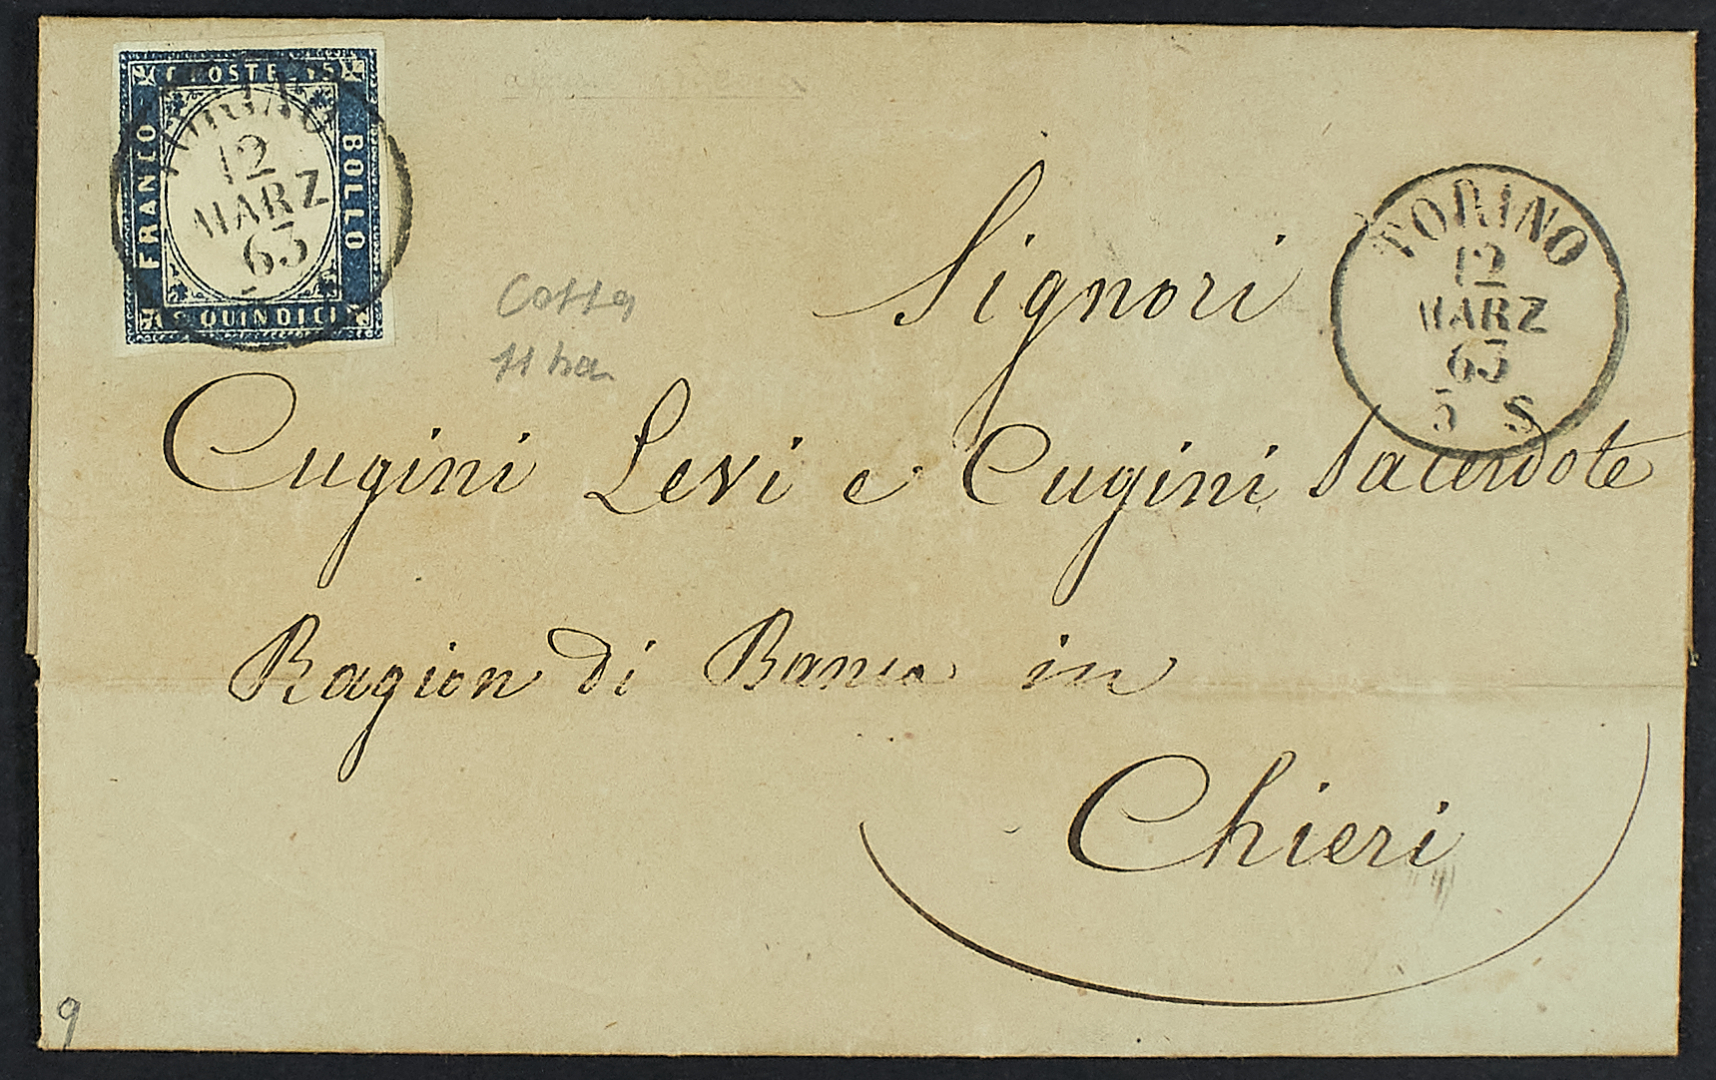 C POSTE 15
FRANCO
BOLLO
C QUINDICI
TORINO
12
MARZ
63
TORINO
12
MARZ
63
5 S
Signori
Cugini Levi e Cugini Sacerdote
Ragion di Banca in
Chieri
9